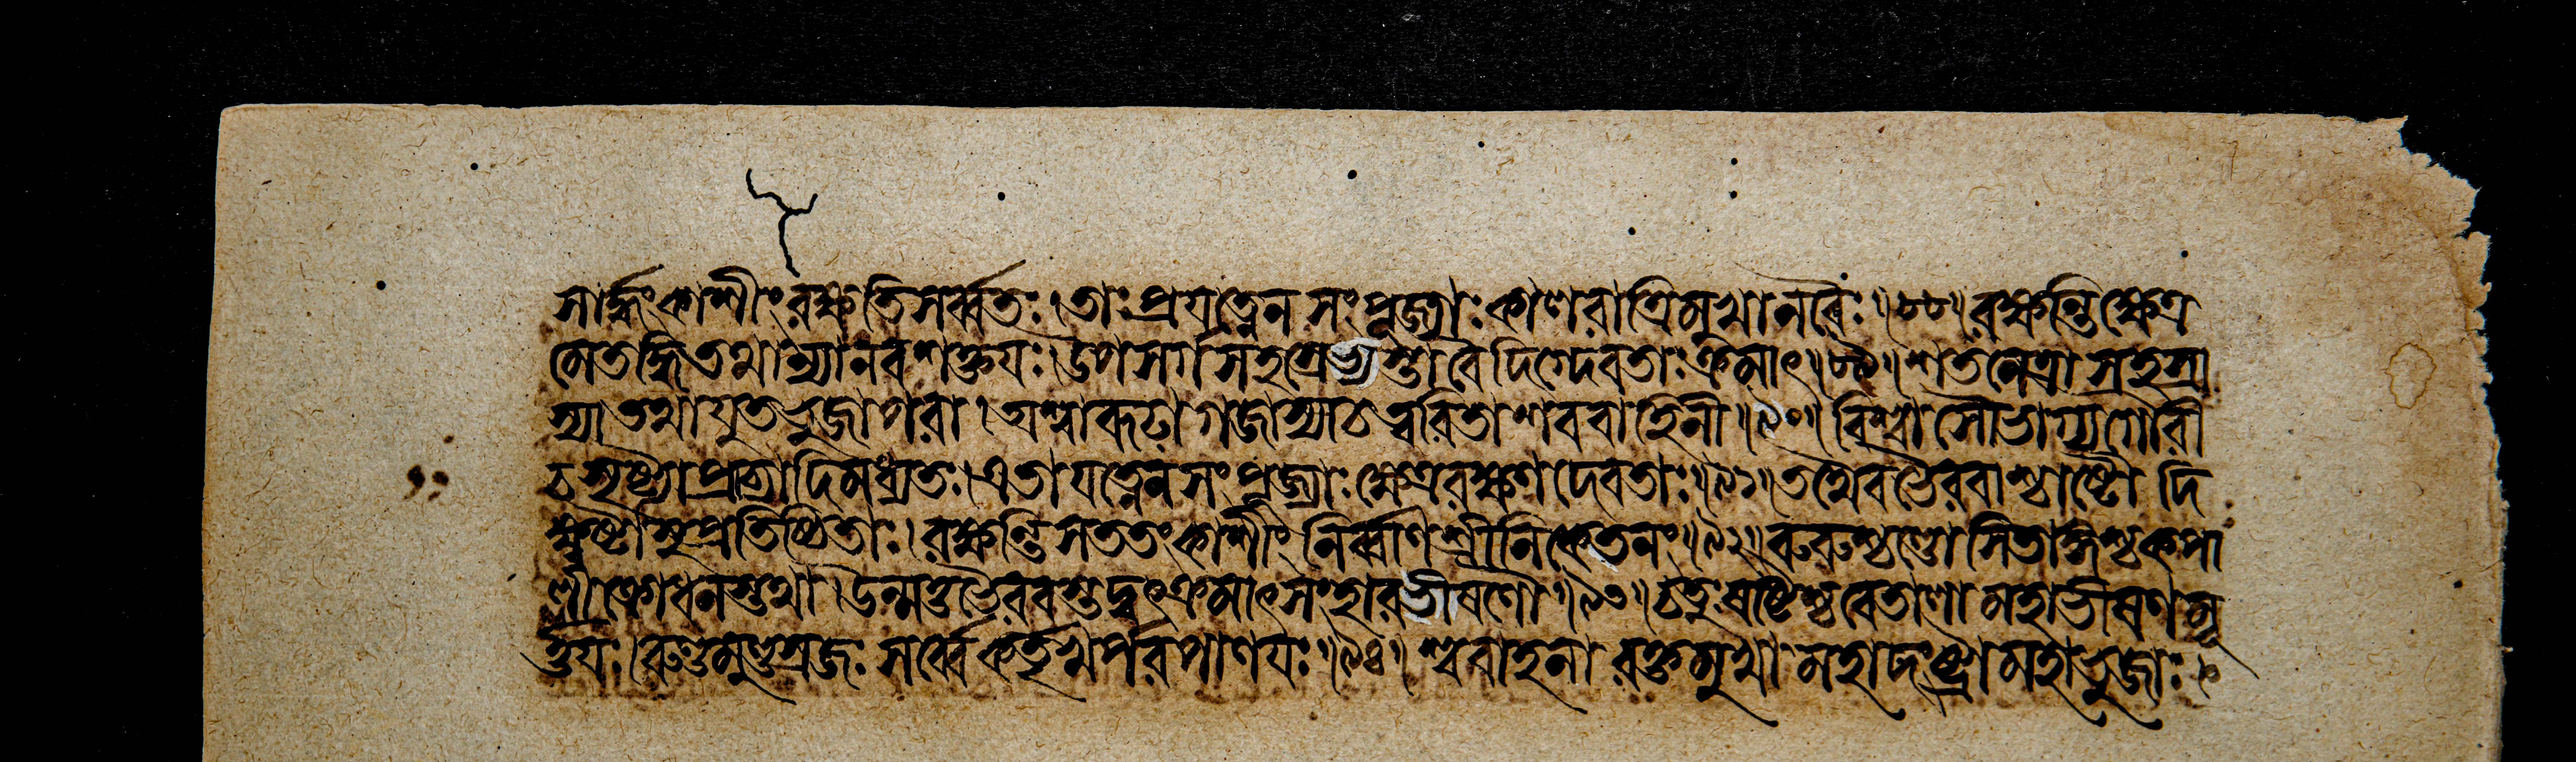 সার্দ্ধং কাশীং রক্ষতি সর্ব্বতঃ । তাঃ প্রযত্নেন সংপূজ্যাঃ কালরাত্রিমুখা নরৈঃ ॥ ৮৮ ॥ রক্ষন্তি ক্ষেত্র
মেতদ্ধি তথান্যা নব শক্তয়ঃ । উপসর্গসহস্রেভ্যস্তা বৈ দিগ্দেবতাঃ ক্রমাৎ ॥ ৮৯ ॥ শতনেত্রা সহস্রা
স্যা তথাযুতভুজাপরা । অশ্বারূঢা গজাস্যা চ ত্বরিতা শববাহিনী ॥ ৯০ ॥ বিশ্বা সৌভাগ্যগৌরী
চ সৃষ্টাঃ প্রাচ্যাদিমধ্যতঃ । এতা যত্নেন সংপূজ্যাঃ ক্ষেত্ররক্ষণদেবতাঃ ॥ ৯১ ॥ তথৈব ভৈরবাশ্চাষ্টৌ দি
ক্ষ্বষ্টাসু প্রতিষ্ঠিতাঃ । রক্ষন্তি সততং কাশীং নির্ব্বাণশ্রীনিকেতনং ॥ ৯২ ॥ রুরুশ্চণ্ডো সিতাঙ্গশ্চ কপা
লী ক্রোধনস্তথা । উন্মত্তভৈরবস্তদ্বৎ ক্রমাৎ সংহারভীষণৌ ॥ ৯৩ ॥ চতুঃষষ্টিশ্চ বেতালা মহাভীষণমূ
র্ত্তয়ঃ । রুণ্ডমুণ্ডস্রজঃ সর্ব্বে কর্তৃখর্পরপাণয়ঃ ॥ ৯৪ ॥ শ্ববাহনা রক্তমুখা মহাদংষ্ট্রা মহাভুজাঃ ।